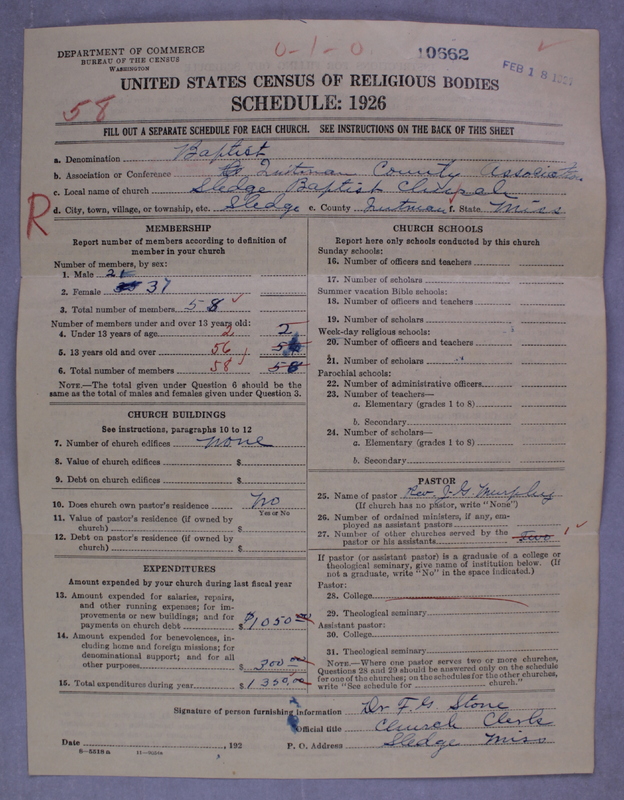 DEPARTMENT OF COMMERCE
BUREAU OF THE CENSUS
WASHINGTON
0-1-0
10662
FEB 18 1927
58
UNITED STATES CENSUS OF RELIGIOUS BODIES
SCHEDULE: 1926
FILL OUT A SEPARATE SCHEDULE FOR EACH CHURCH. SEE INSTRUCTIONS ON THE BACK OF THIS SHEET
a. Denomination Baptist
b. Association or Conference Quitman County Association
c. Local name of church Sledge Baptist Church
R
d. City, town, village, or township, etc. Sledge e. County Quitman f. State Miss
MEMBERSHIP
Report number of members according to definition of
member in your church
Number of members, by sex:
1. Male 21
2. Female 37
3. Total number of members 58
Number of members under and over 13 years old:
4. Under 13 years of age 2 2
5. 13 years old and over 56
6. Total number of members 58 58
NOTE.—The total given under Question 6 should be
same as the total of males and females given under Question 3.
CHURCH BUILDINGS
See instructions, paragraphs 10 to 12
7. Number of church edifices none
8. Value of church edifices $
9. Debt on church edifices $
10. Does church own pastor's residence no
Yes or No
11. Value of pastor's residence (if owned by
church) $
12. Debt on pastor's residence (if owned by
church) $
EXPENDITURES
Amount expended by your church during last fiscal year
13. Amount expended for salaries, repairs,
and other running expenses; for im-
provements or new buildings; and for
payments on church debt $1050.00
14. Amount expended for benevolences, in-
cluding home and foreign missions; for
denominational support; and for all
other purposes 300.00
15. Total expenditures during year $1350.00
CHURCH SCHOOLS
Report here only schools conducted by this church
Sunday schools:
16. Number of officers and teachers
17. Number of scholars
Summer vacation Bible schools:
18. Number of officers and teachers
19. Number of scholars
Week-day religious schools:
20. Number of officers and teachers
21. Number of scholars
Parochial schools:
22. Number of administrative officers
23. Number of teachers—
a. Elementary (grades 1 to 8)
b. Secondary
24. Number of scholars—
a. Elementary (grades 1 to 8)
b. Secondary
PASTOR
25. Name of pastor Rev. J. G. Murphy
(If church has no pastor, write "None")
26. Number of ordained ministers, if any, em-
ployed as assistant pastors
27. Number of other churches served by the
pastor or his assistants Two 1
If pastor (or assistant pastor) is a graduate of a college or
theological seminary, give name of institution below. (If
not a graduate, write "No" in the space indicated.)
Pastor:
28. College
29. Theological seminary
Assistant pastor:
30. College
31. Theological seminary
NOTE.—Where one pastor serves two or more churches,
Questions 28 and 29 should be answered only on the schedule
for one of the churches; on the schedules for the other churches,
write "See schedule for church."
Signature of person furnishing information Dr F. G. Stone
Official title Church Clerk
Date , 192 P. O. Address Sledge Miss